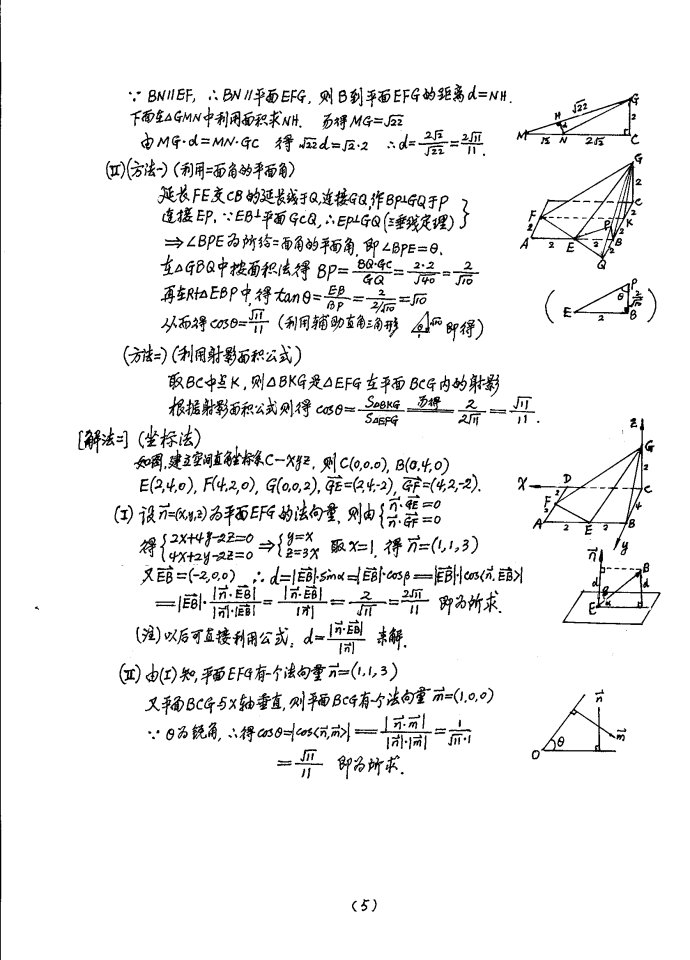 ∵ BN∥EF, ∴BN∥平面EFG, 则B到平面EFG的距离d=NH.
下面在△GMN中利用面积求NH. 易得MG=√22
由MG·d=MN·GC 得√22d=√2·2 ∴d=2√2/√22=2√11/11.
(Ⅱ)(方法一)(利用二面角的平面角)
延长FE交CB的延长线于Q,连接GQ,作BP⊥GQ于P
连接EP,∵EB⊥平面GCQ,∴EP⊥GQ(三垂线定理)}
⇒∠BPE为所给二面角的平面角,即∠BPE=θ.
在△GBQ中按面积法得 BP=BQ·GC/GQ=2·2/√40=2/√10
再在Rt△EBP中,得tanθ=EB/BP=2/(2/√10)=√10
从而得cosθ=√11/11 (利用辅助直角三角形 √10 θ 1 即得)
(方法二)(利用射影面积公式)
取BC中点K,则△BKG是△EFG在平面BCG内的射影
根据射影面积公式则得cosθ=S△BKG/S△EFG 易得=2/2√11=√11/11.
[解法二](坐标法)
如图,建立空间直角坐标系C-xyz, 则C(0,0,0), B(0,4,0)
E(2,4,0), F(4,2,0), G(0,0,2), GE=(2,4,-2), GF=(4,2,-2).
(Ⅰ)设n=(x,y,z)为平面EFG的法向量,则由{n·GE=0 n·GF=0
得{2x+4y-2z=0 4x+2y-2z=0 ⇒{y=x z=3x 取x=1,得n=(1,1,3)
又EB=(-2,0,0) ∴d=|EB|·sinα=|EB|·cosβ=|EB|·|cos⟨n,EB⟩|
=|EB|·|n·EB|/|n|·|EB|=|n·EB|/|n|=2/√11=2√11/11 即为所求.
(注)以后可直接利用公式: d=|n·EB|/|n| 来解.
(Ⅱ)由(Ⅰ)知,平面EFG有一个法向量n=(1,1,3)
又平面BCG与x轴垂直,则平面BCG有一个法向量m=(1,0,0)
∵θ为锐角,∴得cosθ=|cos⟨n,m⟩|=|n·m|/|n|·|m|=1/√11·1
=√11/11 即为所求.
(5)